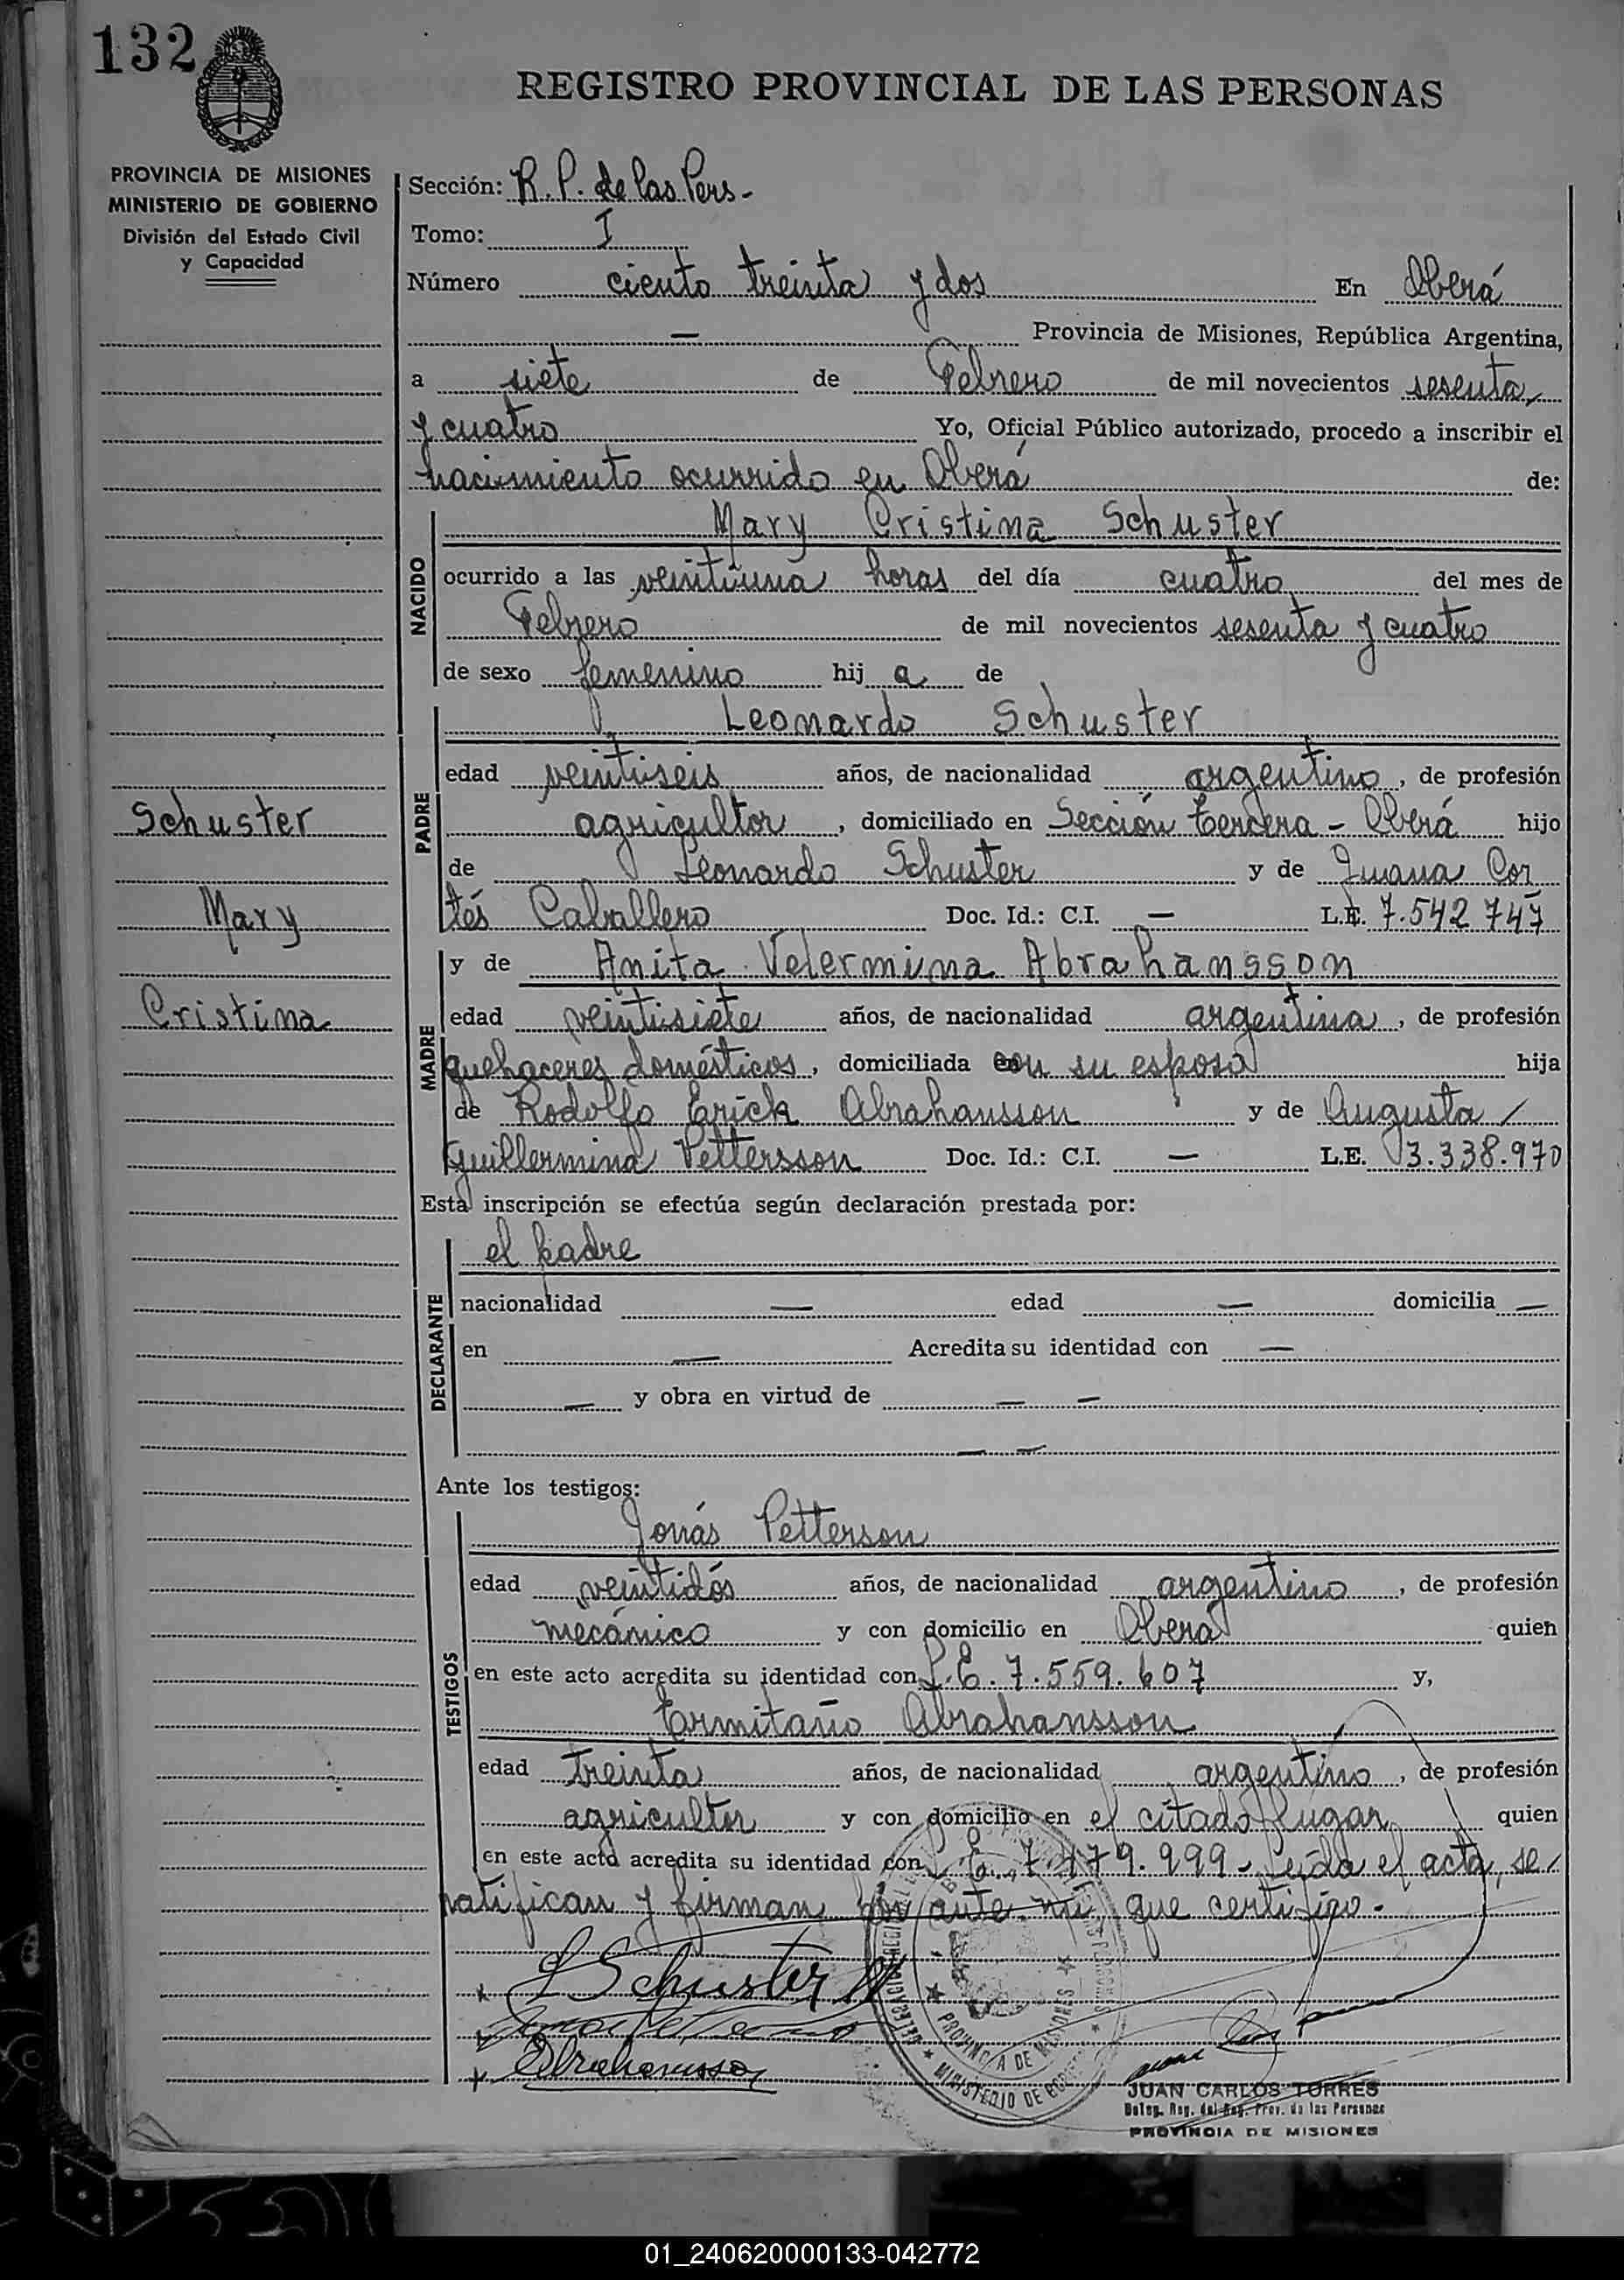 132
REGISTRO PROVINCIAL DE LAS PERSONAS
PROVINCIA DE MISIONES
MINISTERIO DE GOBIERNO
División del Estado Civil
y Capacidad
Sección: R. P. de las Pers -
Tomo: I
Número ciento treinta y dos En Oberá
— Provincia de Misiones, República Argentina,
a siete de Febrero de mil novecientos sesenta
y cuatro Yo, Oficial Público autorizado, procedo a inscribir el
nacimiento ocurrido en Oberá de:
NACIDO
Mary Cristina Schuster
ocurrido a las veintiuna horas del día cuatro del mes de
Febrero de mil novecientos sesenta y cuatro
de sexo femenino hij a de
PADRE
Leonardo Schuster
edad veintiseis años, de nacionalidad argentino, de profesión
agricultor, domiciliado en Sección tercera - Oberá hijo
de Leonardo Schuster y de Juana Cor
tés Caballero Doc. Id.: C.I. — L.E. 7.542.747
Schuster
Mary
Cristina
MADRE
y de Anita Velermina Abrahansson
edad veintisiete años, de nacionalidad argentina, de profesión
quehaceres domésticos, domiciliada con su esposo hija
de Rodolfo Erick Abrahansson y de Augusta /
Guillermina Pettersson Doc. Id.: C.I. — L.E. 3.338.970
Esta inscripción se efectúa según declaración prestada por:
DECLARANTE
el padre
nacionalidad — edad — domicilia —
en — Acredita su identidad con —
— y obra en virtud de — —
— —
Ante los testigos:
TESTIGOS
Jonás Petterson
edad veintidós años, de nacionalidad argentino, de profesión
mecánico y con domicilio en Oberá quien
en este acto acredita su identidad con L.E. 7.559.607 y,
Ermitaño Abrahansson
edad treinta años, de nacionalidad argentino, de profesión
agricultor y con domicilio en el citado lugar quien
en este acto acredita su identidad con L.E. 7.179.999 - Leída el acta, se
ratifican y firman por ante mi que certifico.-
L Schuster
Abrahansson
PROVINCIA DE MISIONES
MINISTERIO DE
JUAN CARLOS TORRES
Deleg. Reg. del Reg. Prov. de las Personas
PROVINCIA DE MISIONES
01_240620000133-042772